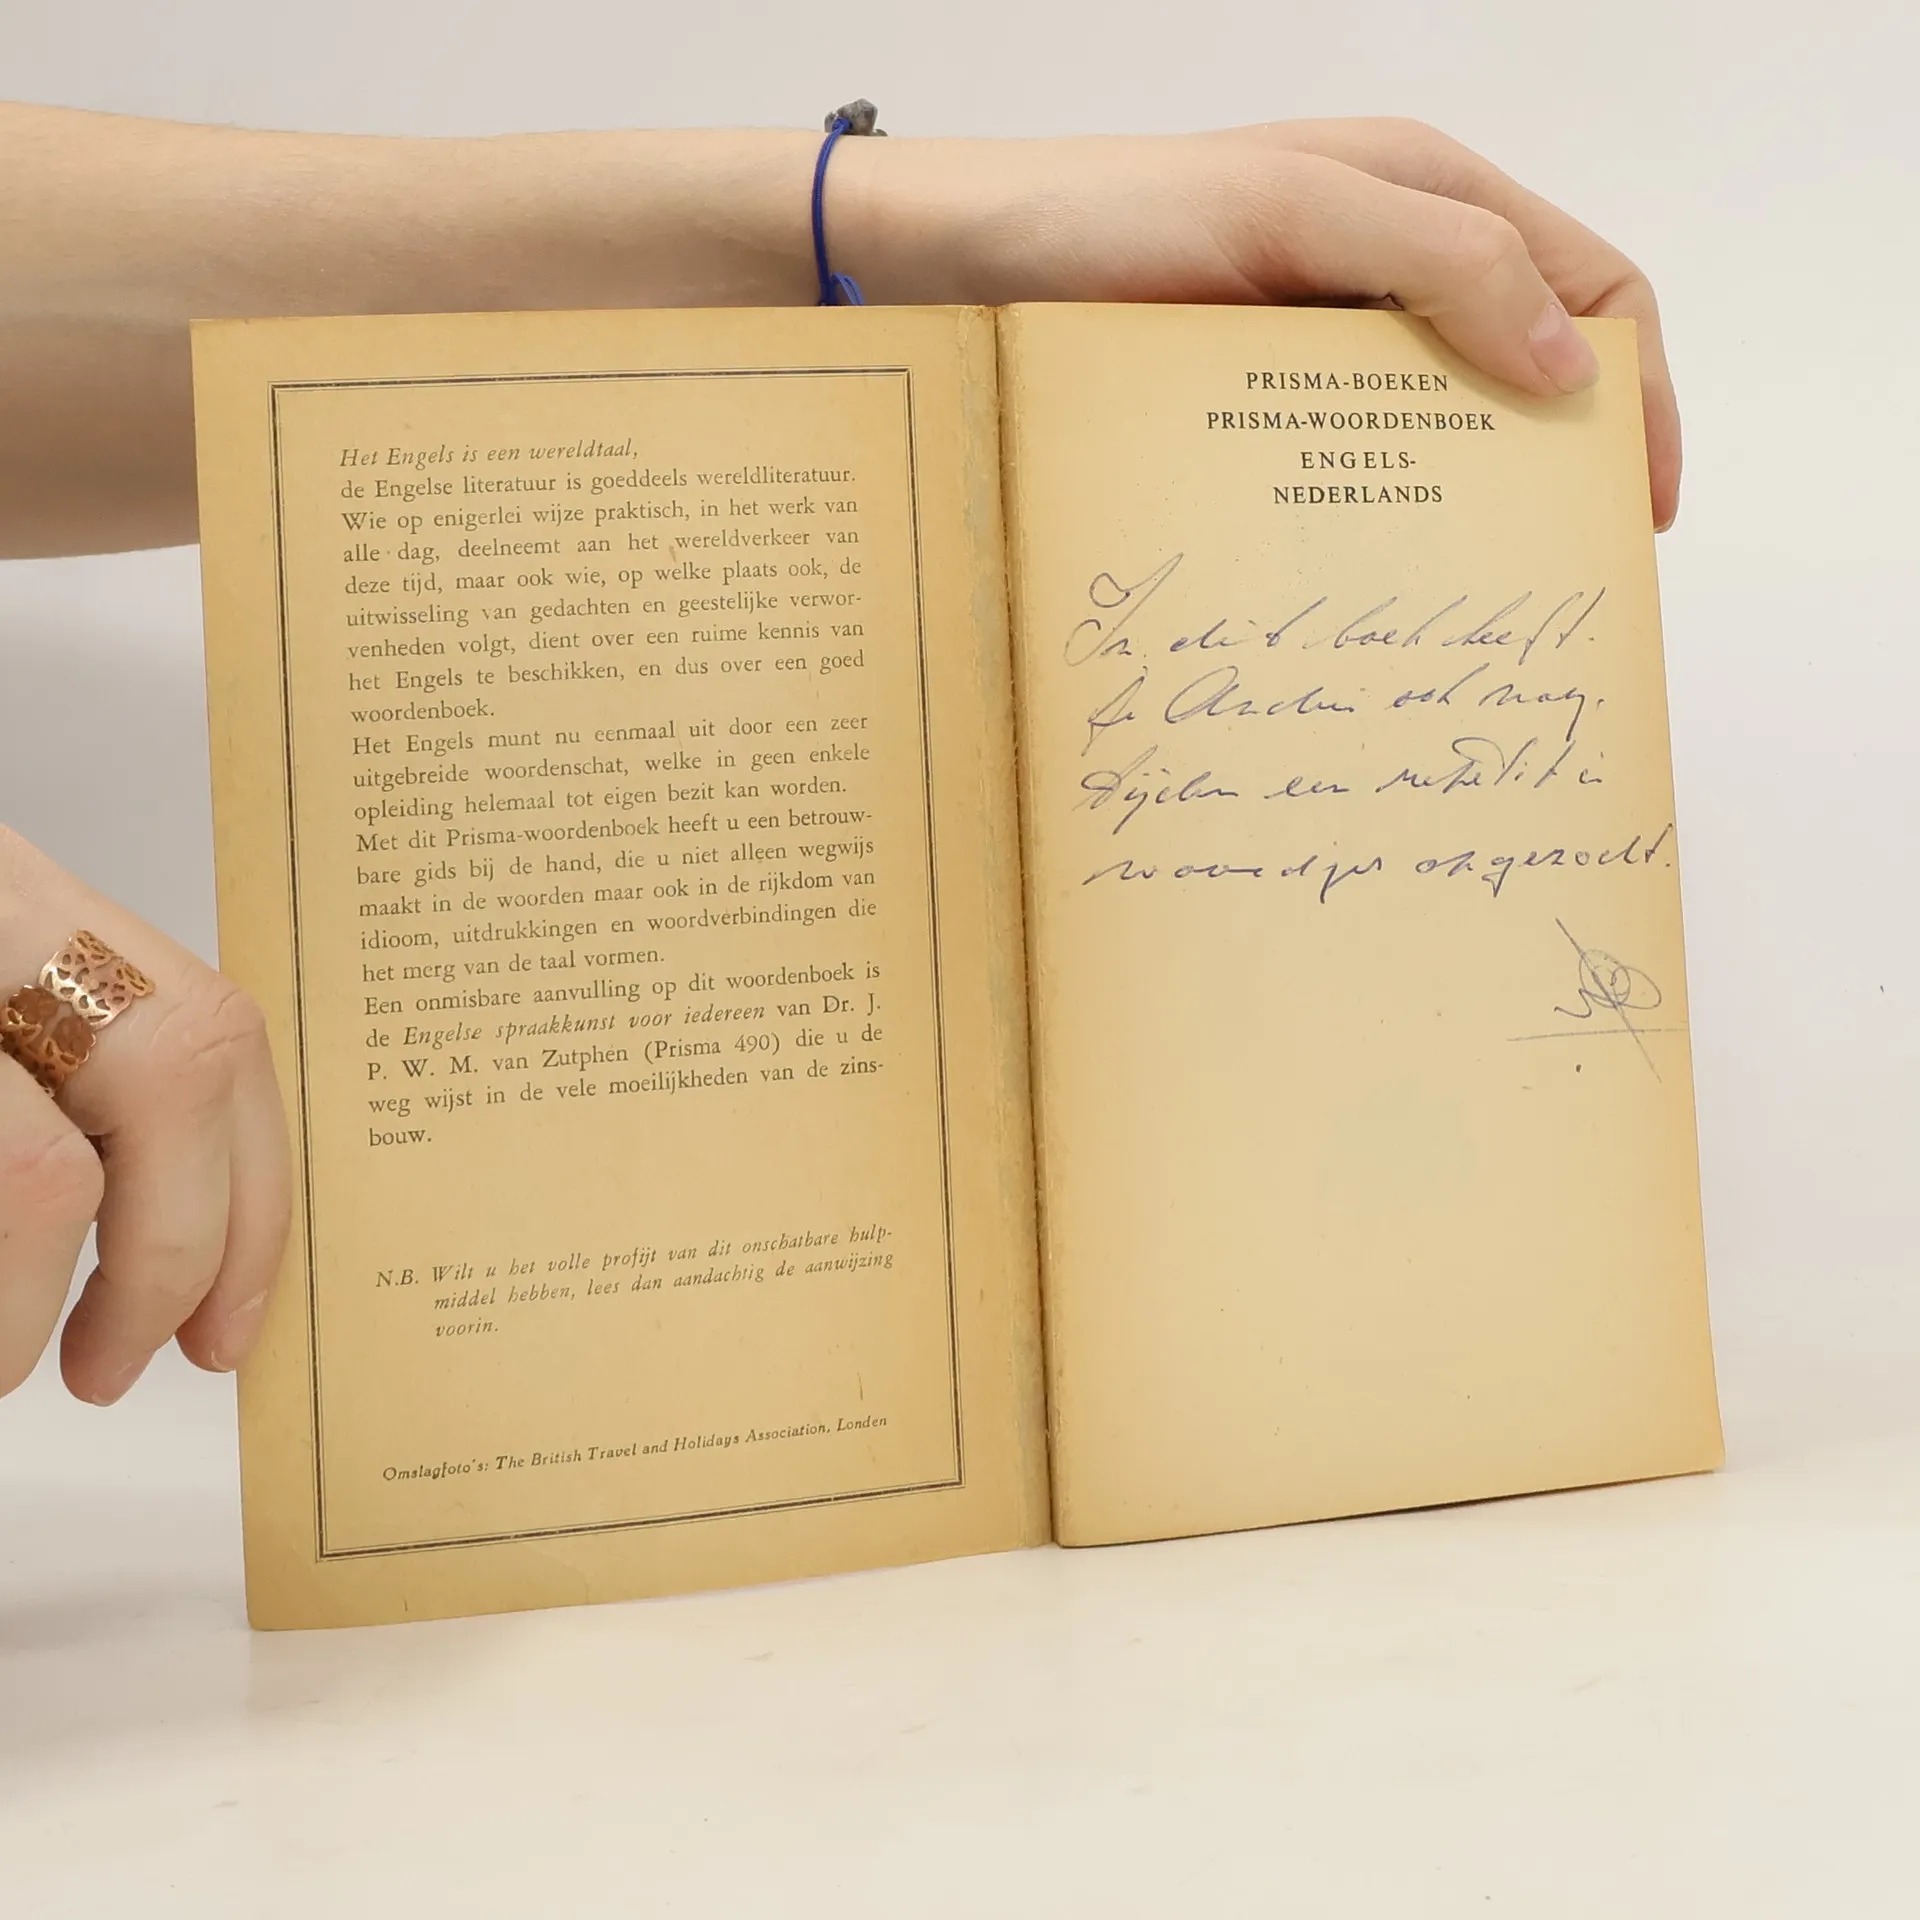 Het Engels is een wereldtaal,
de Engelse literatuur is goeddeels wereldliteratuur.
Wie op enigerlei wijze praktisch, in het werk van
alle dag, deelneemt aan het wereldverkeer van
deze tijd, maar ook wie, op welke plaats ook, de
uitwisseling van gedachten en geestelijke verwor-
venheden volgt, dient over een ruime kennis van
het Engels te beschikken, en dus over een goed
woordenboek.
Het Engels munt nu eenmaal uit door een zeer
uitgebreide woordenschat, welke in geen enkele
opleiding helemaal tot eigen bezit kan worden.
Met dit Prisma-woordenboek heeft u een betrouw-
bare gids bij de hand, die u niet alleen wegwijs
maakt in de woorden maar ook in de rijkdom van
idioom, uitdrukkingen en woordverbindingen die
het merg van de taal vormen.
Een onmisbare aanvulling op dit woordenboek is
de Engelse spraakkunst voor iedereen van Dr. J.
P. W. M. van Zutphen (Prisma 490) die u de
weg wijst in de vele moeilijkheden van de zins-
bouw.
N.B. Wilt u het volle profijt van dit onschatbare hulp-
middel hebben, lees dan aandachtig de aanwijzing
voorin.
Omslagfoto's: The British Travel and Holidays Association, Londen
PRISMA-BOEKEN
PRISMA-WOORDENBOEK
ENGELS-
NEDERLANDS
In dit boek heeft
ook nog
een
woordjes opgezocht.